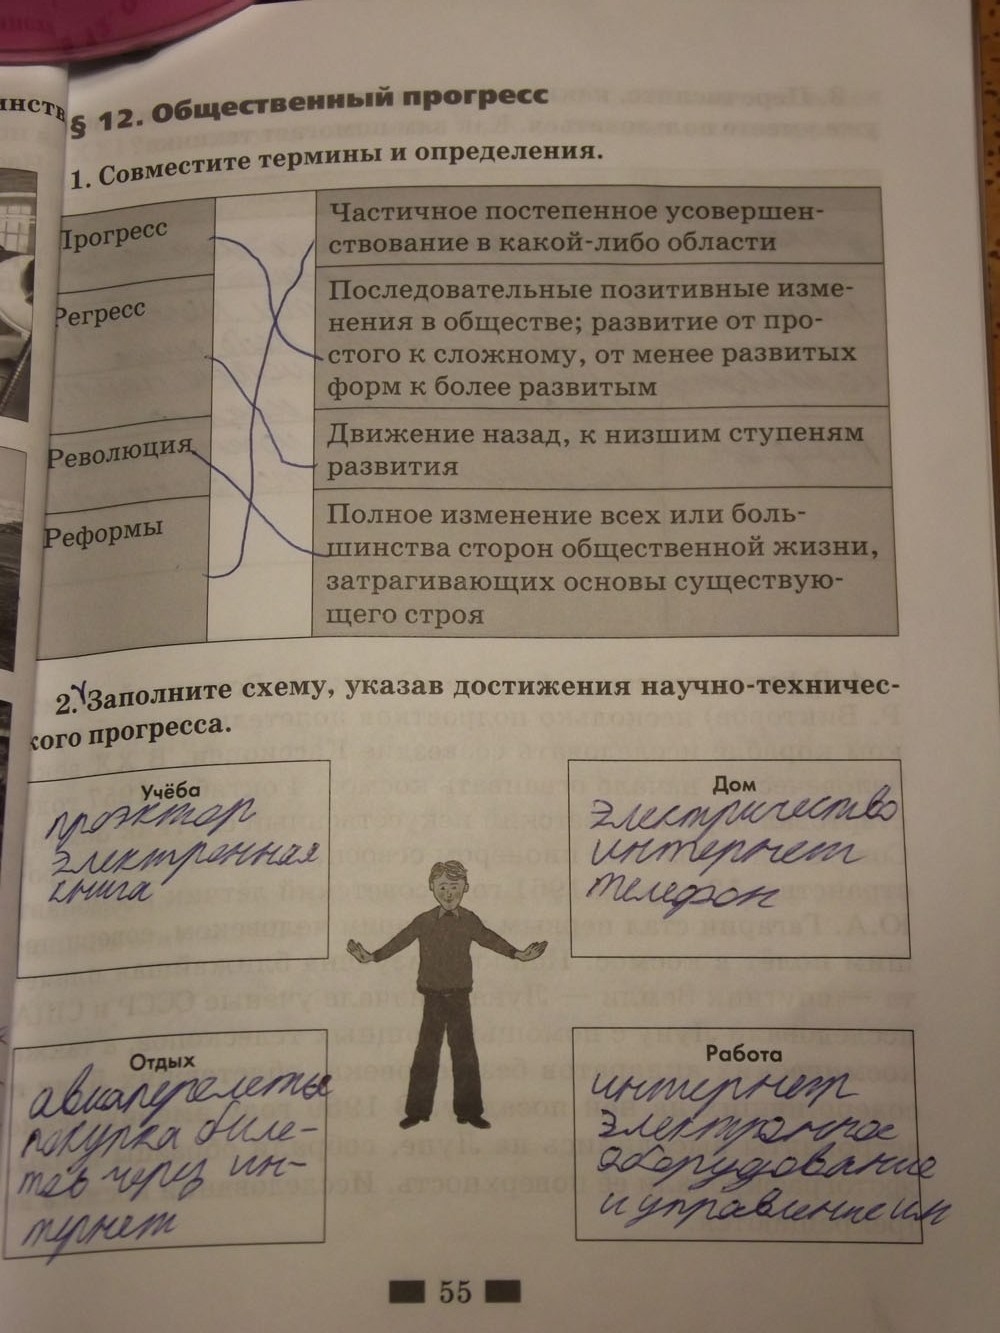 § 12. Общественный прогресс
1. Совместите термины и определения.
Прогресс
Регресс
Революция
Реформы
Частичное постепенное усовершен-
ствование в какой-либо области
Последовательные позитивные изме-
нения в обществе; развитие от про-
стого к сложному, от менее развитых
форм к более развитым
Движение назад, к низшим ступеням
развития
Полное изменение всех или боль-
шинства сторон общественной жизни,
затрагивающих основы существую-
щего строя
2. Заполните схему, указав достижения научно-техничес-
кого прогресса.
Учёба
проэктор
электронная
книга
Дом
электричество
интернет
телефон
Отдых
авиаперелеты
покупка биле-
тов через ин-
тернет
Работа
интернет
электронное
оборудование
и управление им
55